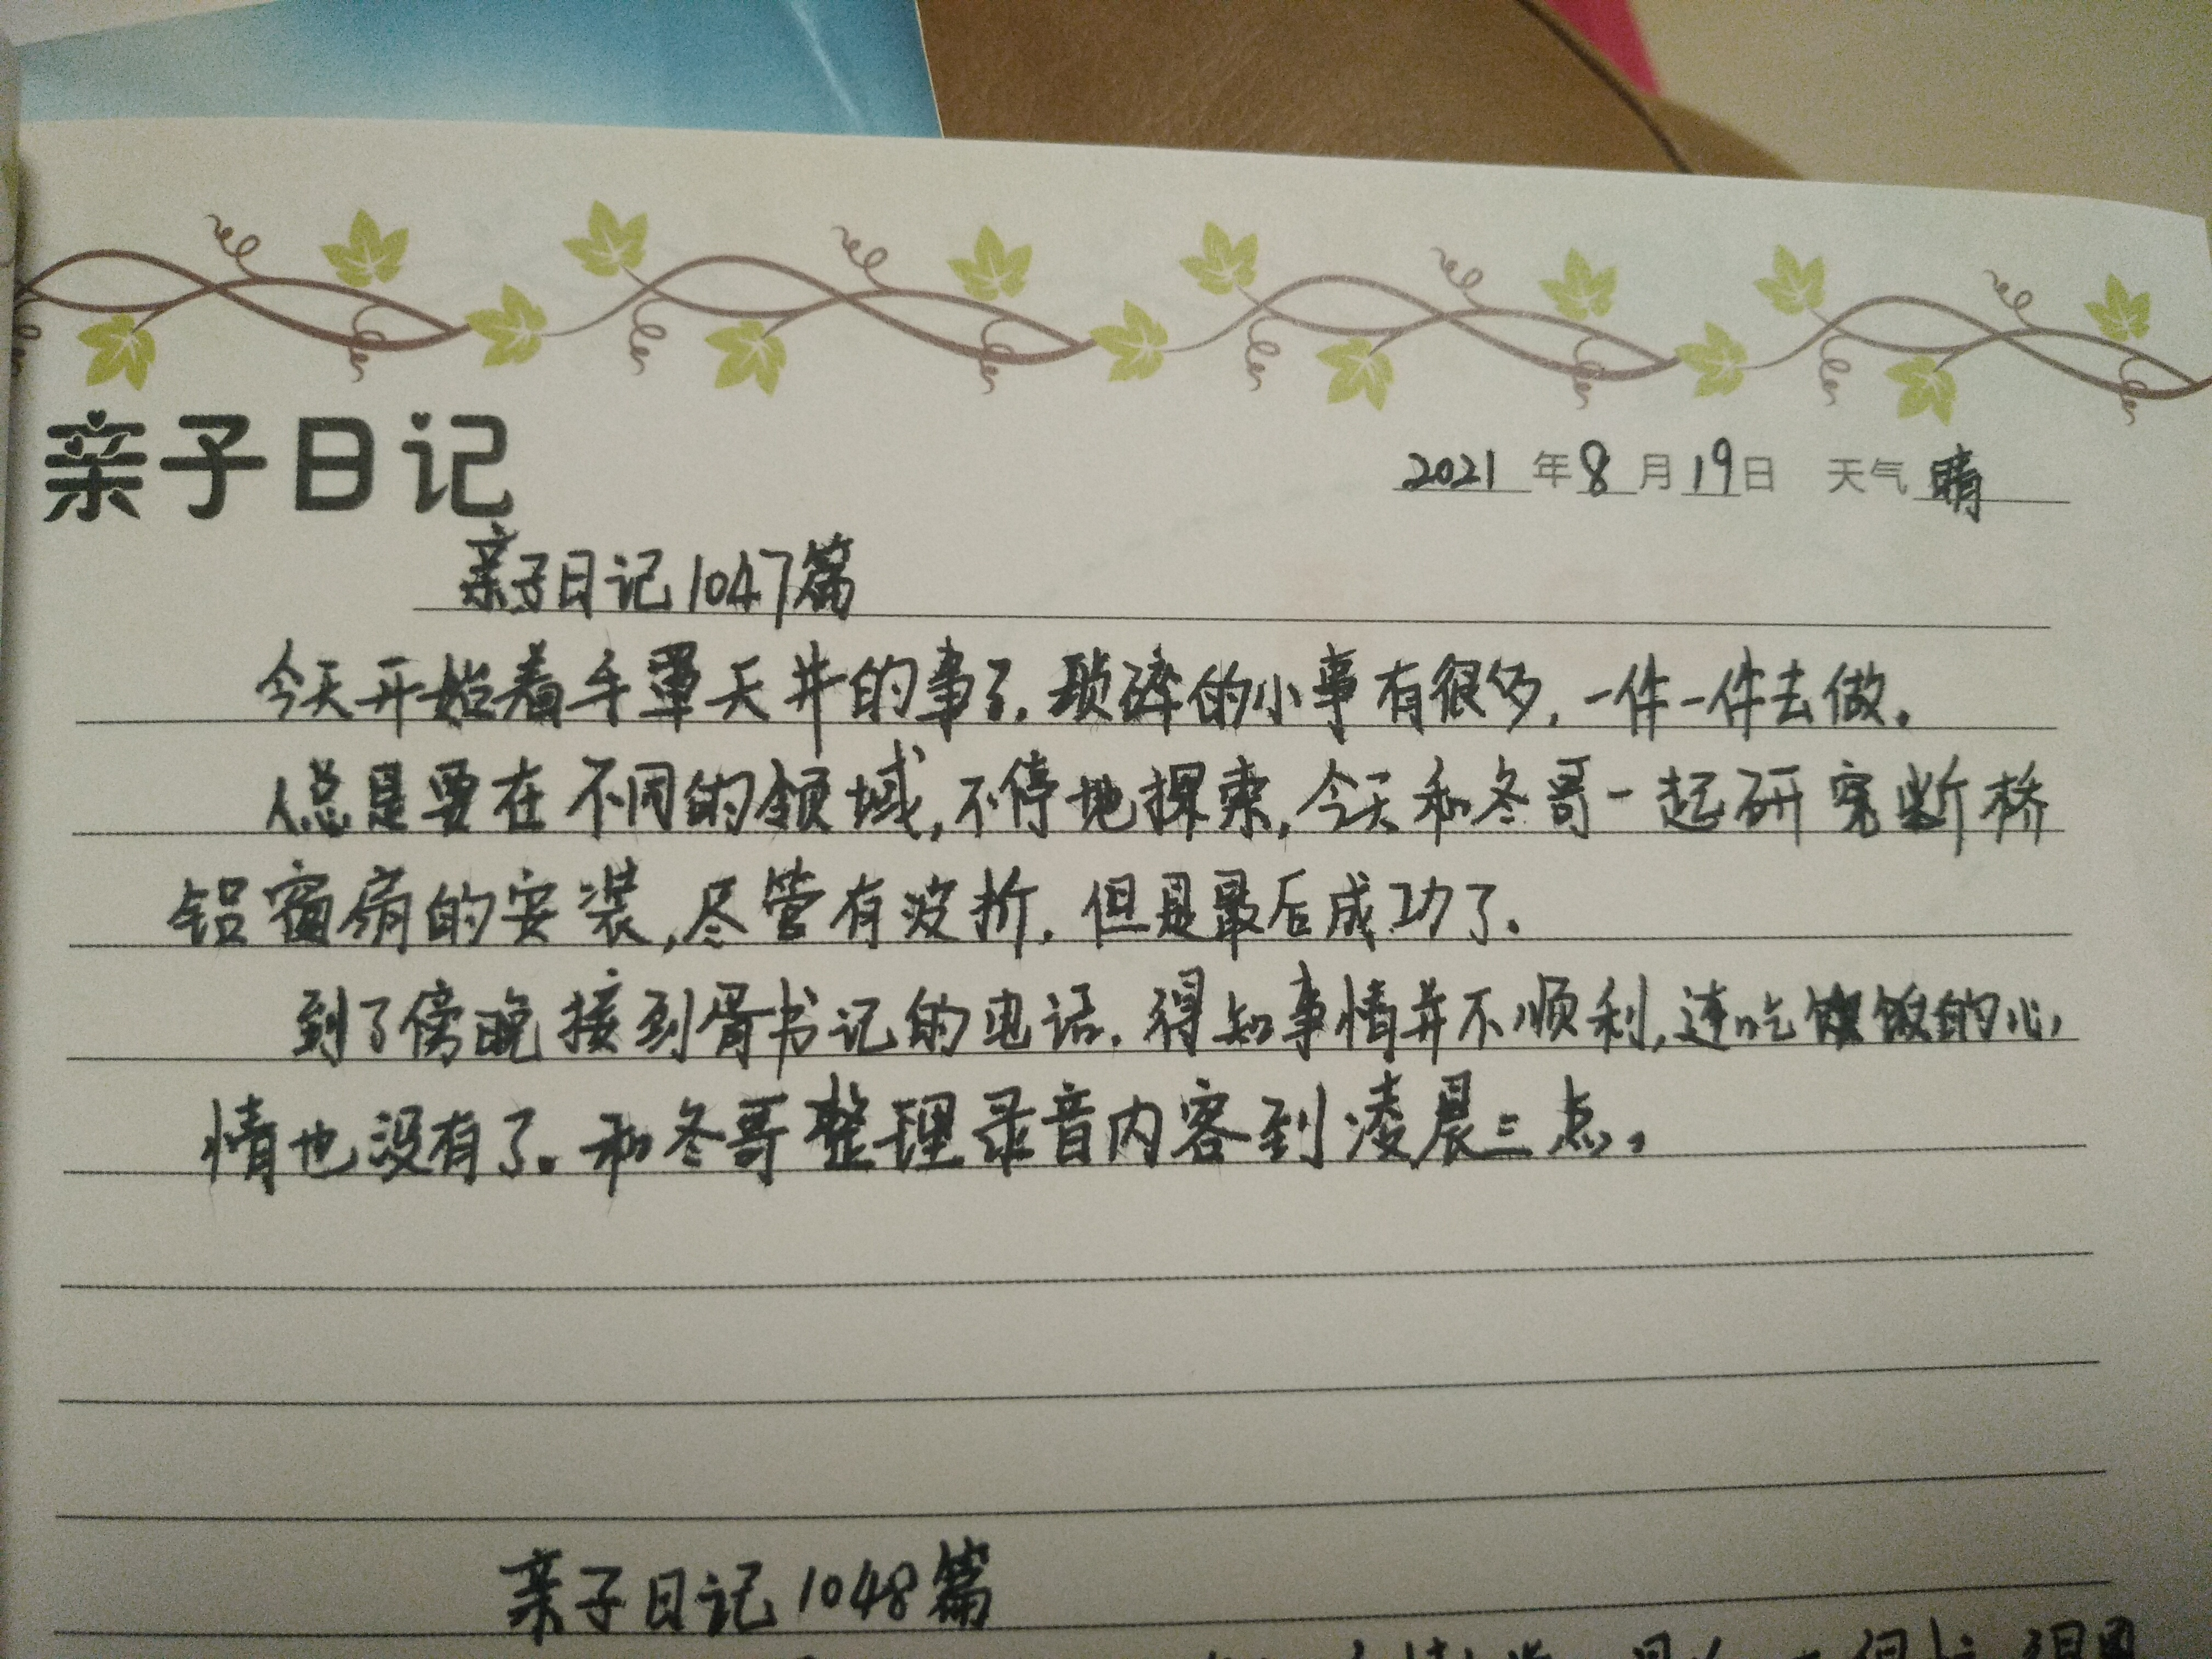 亲子日记
2021年8月19日 天气 晴
亲子日记1047篇
今天开始着手罩天井的事了.琐碎的小事有很多,一件一件去做。
人总是要在不同的领域,不停地探索,今天和冬哥一起研究断桥
铝窗扇的安装,尽管有波折,但是最后成功了.
到了傍晚接到胥书记的电话.得知事情并不顺利,连吃饭的心
情也没有了。和冬哥整理录音内容到凌晨三点。
亲子日记1048篇